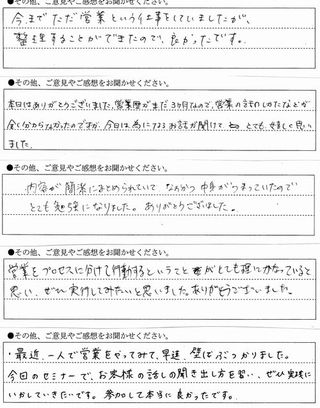 ●その他、ご意見やご感想をお聞かせください。
今までただ営業という仕事をしていましたが、
整理することができたので、良かったです。
●その他、ご意見やご感想をお聞かせください。
本日はありがとうございました。営業歴がまだ3ヶ月なので、営業の話のしかたなどが
全く分からなかったのですが、今日は為になるお話が聞けて とても、うれしく思い
ました。
●その他、ご意見やご感想をお聞かせください。
内容が簡潔にまとめられていて なおかつ 中身がつまっていたので
とても勉強になりました。ありがとうございました。
●その他、ご意見やご感想をお聞かせください。
営業をプロセスに分けて行動するということがとても理にかなっていると
思い、ぜひ実行してみたいと思いました。ありがとうございました。
●その他、ご意見やご感想をお聞かせください。
・最近、一人で営業をやってみて、早速、壁にぶつかりました。
今回のセミナーで、お客様の話しの聞き出し方を習い、ぜひ実践に
いかしていきたいです。参加して本当に良かったです。